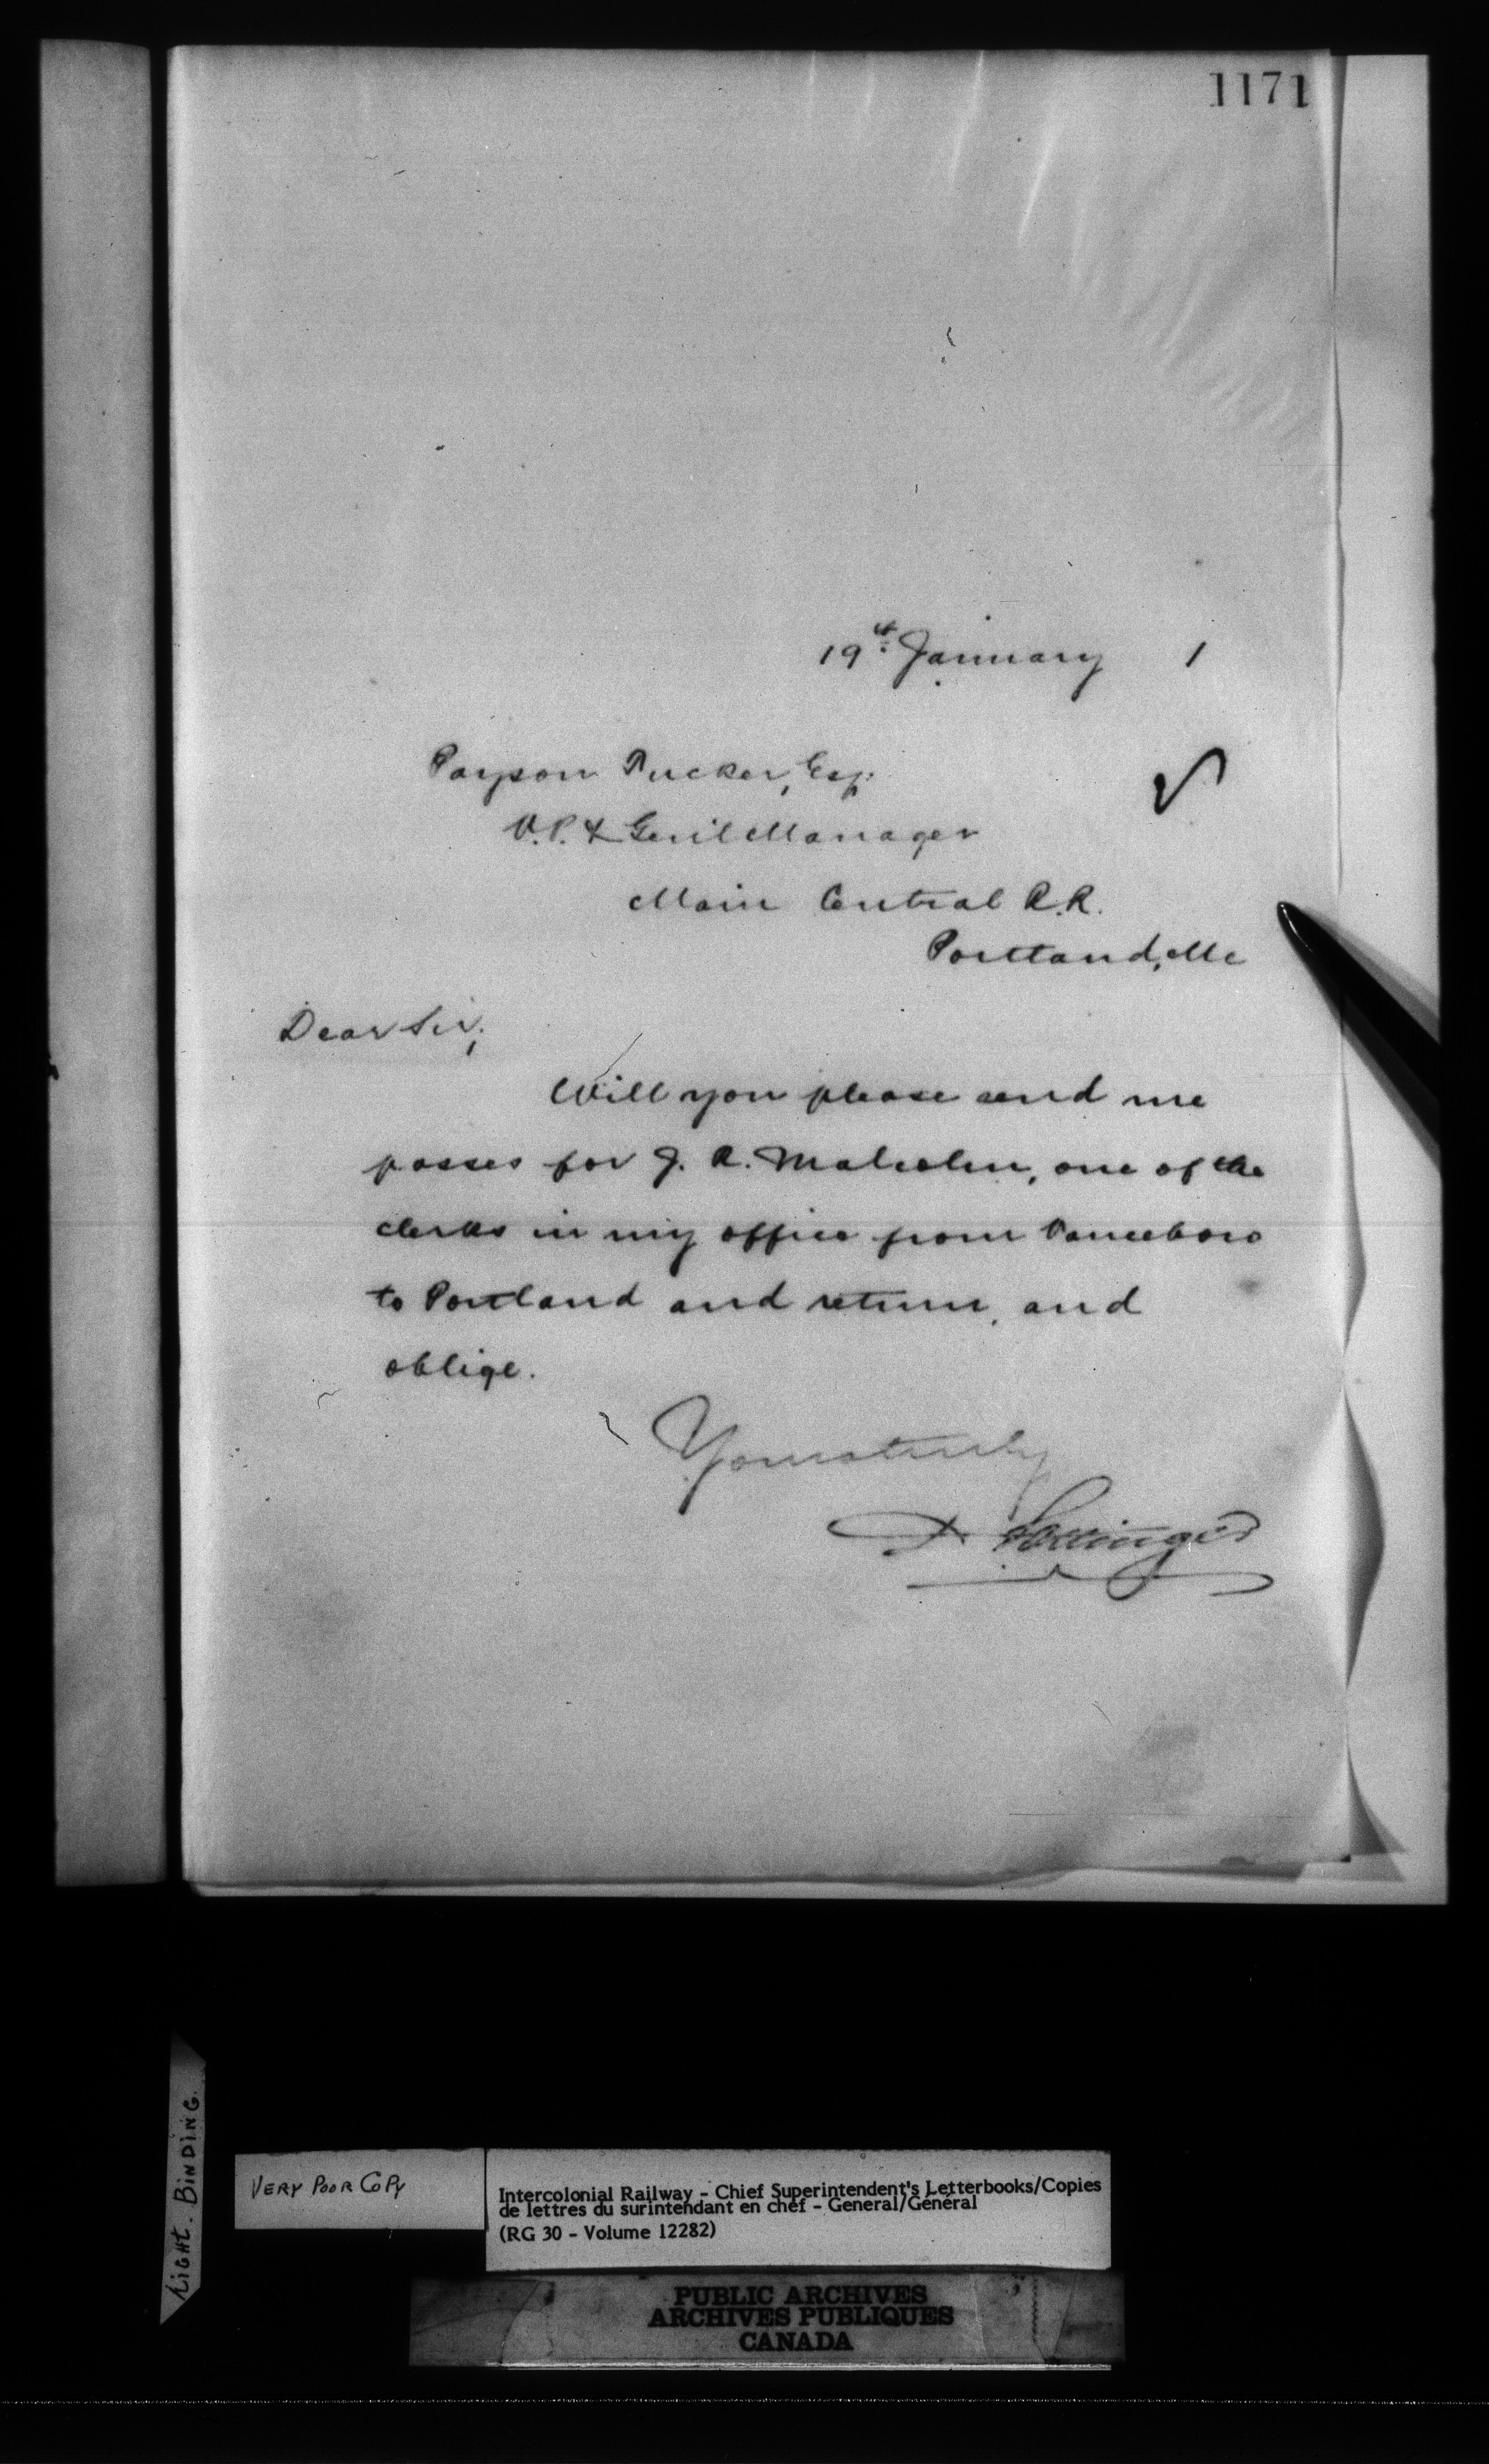 1171
19th January 1
Payson Tucker, Esq.
V.P. & Gen'l Manager
Main Central R.R.
Portland, Me
Dear Sir,
Will you please send me
passes for J. R. Malcolm, one of the
clerks in my office from Vanceboro
to Portland and return, and
oblige.
Yours truly
D Pottinger
TIGHT. BINDING.
VERY POOR COPY
Intercolonial Railway - Chief Superintendent's Letterbooks/Copies
de lettres du surintendant en chef - General/Général
(RG 30 - Volume 12282)
PUBLIC ARCHIVES
ARCHIVES PUBLIQUES
CANADA